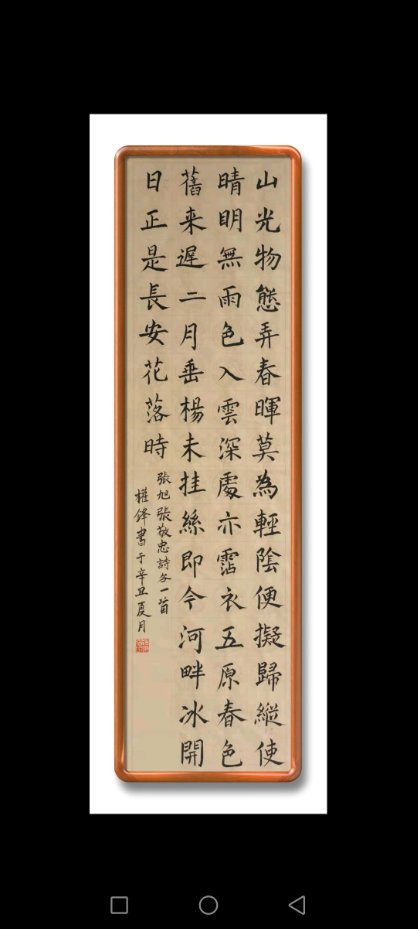 山光物態弄春暉莫為輕陰便擬歸縱使
晴明無雨色入雲深處亦霑衣五原春色
舊来遲二月垂楊未挂絲即今河畔冰開
日正是長安花落時
張旭張敬忠詩各一首
鋒書于辛丑夏月